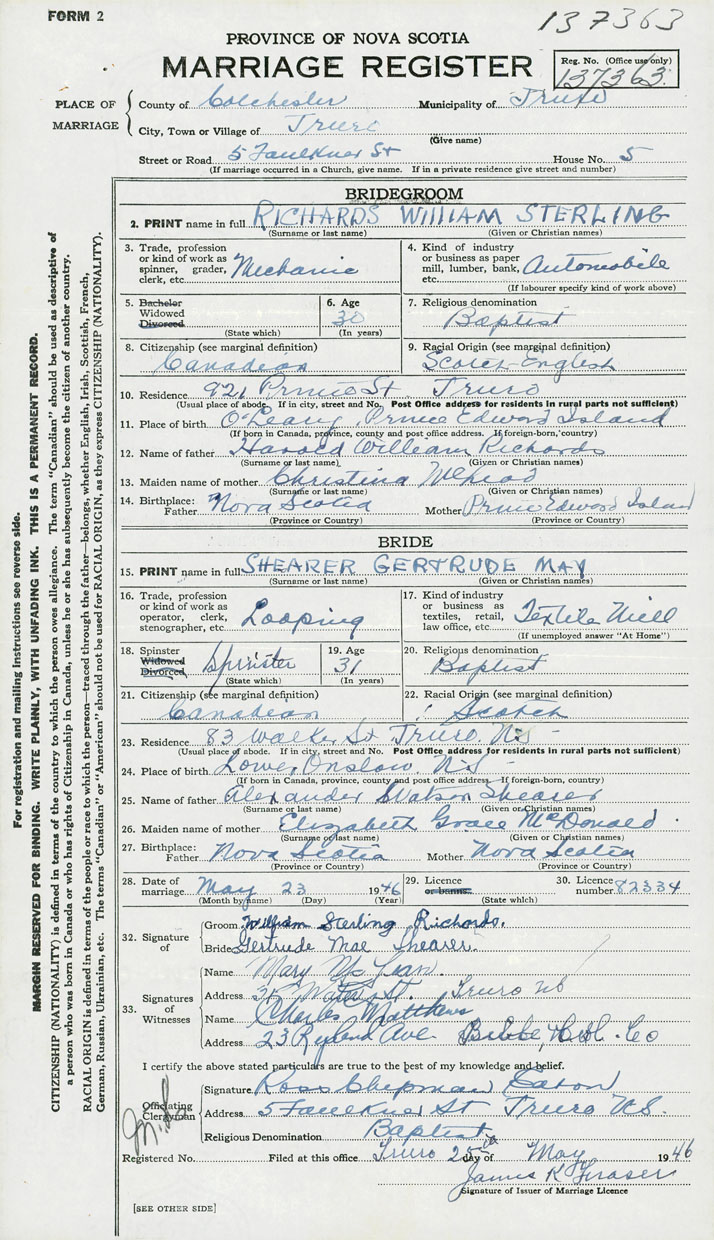 FORM 2
137363
PROVINCE OF NOVA SCOTIA
MARRIAGE REGISTER
Reg. No. (Office use only)
137363
PLACE OF MARRIAGE
County of Colchester Municipality of Truro
City, Town or Village of Truro
(Give name)
Street or Road 5 Faulkner St House No. 5
(If marriage occurred in a Church, give name. If in a private residence give street and number)
BRIDEGROOM
2. PRINT name in full RICHARDS WILLIAM STERLING
(Surname or last name) (Given or Christian names)
3. Trade, profession or kind of work as spinner, grader, clerk, etc. Mechanic
4. Kind of industry or business as paper mill, lumber, bank, etc. Automobile
(If labourer specify kind of work above)
5. Bachelor Widowed Divorced (State which)
6. Age 30 (In years)
7. Religious denomination Baptist
8. Citizenship (see marginal definition) Canadian
9. Racial Origin (see marginal definition) Scotch-English
10. Residence 921 Prince St Truro
(Usual place of abode. If in city, street and No. Post Office address for residents in rural parts not sufficient)
11. Place of birth O'Leary, Prince Edward Island
(If born in Canada, province, county and post office address. If foreign-born, country)
12. Name of father Harold William Richards
(Surname or last name) (Given or Christian names)
13. Maiden name of mother Christina
(Surname or last name) (Given or Christian names)
14. Birthplace: Father Nova Scotia Mother Prince Edward Island
(Province or Country) (Province or Country)
BRIDE
15. PRINT name in full SHEARER GERTRUDE MAY
(Surname or last name) (Given or Christian names)
16. Trade, profession or kind of work as operator, clerk, stenographer, etc. Looping
17. Kind of industry or business as textiles, retail, law office, etc. Textile Mill
(If unemployed answer "At Home")
18. Spinster Widowed Divorced Spinster (State which)
19. Age 31 (In years)
20. Religious denomination Baptist
21. Citizenship (see marginal definition) Canadian
22. Racial Origin (see marginal definition) Scotch
23. Residence 83 Walker St Truro. NS
(Usual place of abode. If in city, street and No. Post Office address for residents in rural parts not sufficient)
24. Place of birth Lower Onslow. N.S.
(If born in Canada, province, county and post office address. If foreign-born, country)
25. Name of father Alexander Watson Shearer
(Surname or last name) (Given or Christian names)
26. Maiden name of mother Elizabeth Grace McDonald
(Surname or last name) (Given or Christian names)
27. Birthplace: Father Nova Scotia Mother Nova Scotia
(Province or Country) (Province or Country)
28. Date of marriage May 23 1946
(Month by name) (Day) (Year)
29. Licence or banns (State which)
30. Licence number 82334
32. Signature of
Groom William Sterling Richards.
Bride Gertrude Mae Shearer.
33. Signatures of Witnesses
Name Mary McLean.
Address Water St. Truro NS
Name Charles Matthews
Address 23 Ryland Ave
I certify the above stated particulars are true to the best of my knowledge and belief.
Officiating Clergyman
Signature Ross Chipman Eaton
Address 5 Faulkner St Truro N.S.
Religious Denomination Baptist
Registered No. Filed at this office Truro 25th day of May 1946
James K Fraser
Signature of Issuer of Marriage Licence
[SEE OTHER SIDE]
For registration and mailing instructions see reverse side.
MARGIN RESERVED FOR BINDING. WRITE PLAINLY, WITH UNFADING INK. THIS IS A PERMANENT RECORD.
CITIZENSHIP (NATIONALITY) is defined in terms of the country to which the person owes allegiance. The term "Canadian" should be used as descriptive of
a person who was born in Canada or who has rights of Citizenship in Canada, unless he or she has subsequently become the citizen of another country.
RACIAL ORIGIN is defined in terms of the people or race to which the person—traced through the father—belongs, whether English, Irish, Scottish, French,
German, Russian, Ukrainian, etc. The terms "Canadian" or "American" should not be used for RACIAL ORIGIN, as they express CITIZENSHIP (NATIONALITY).